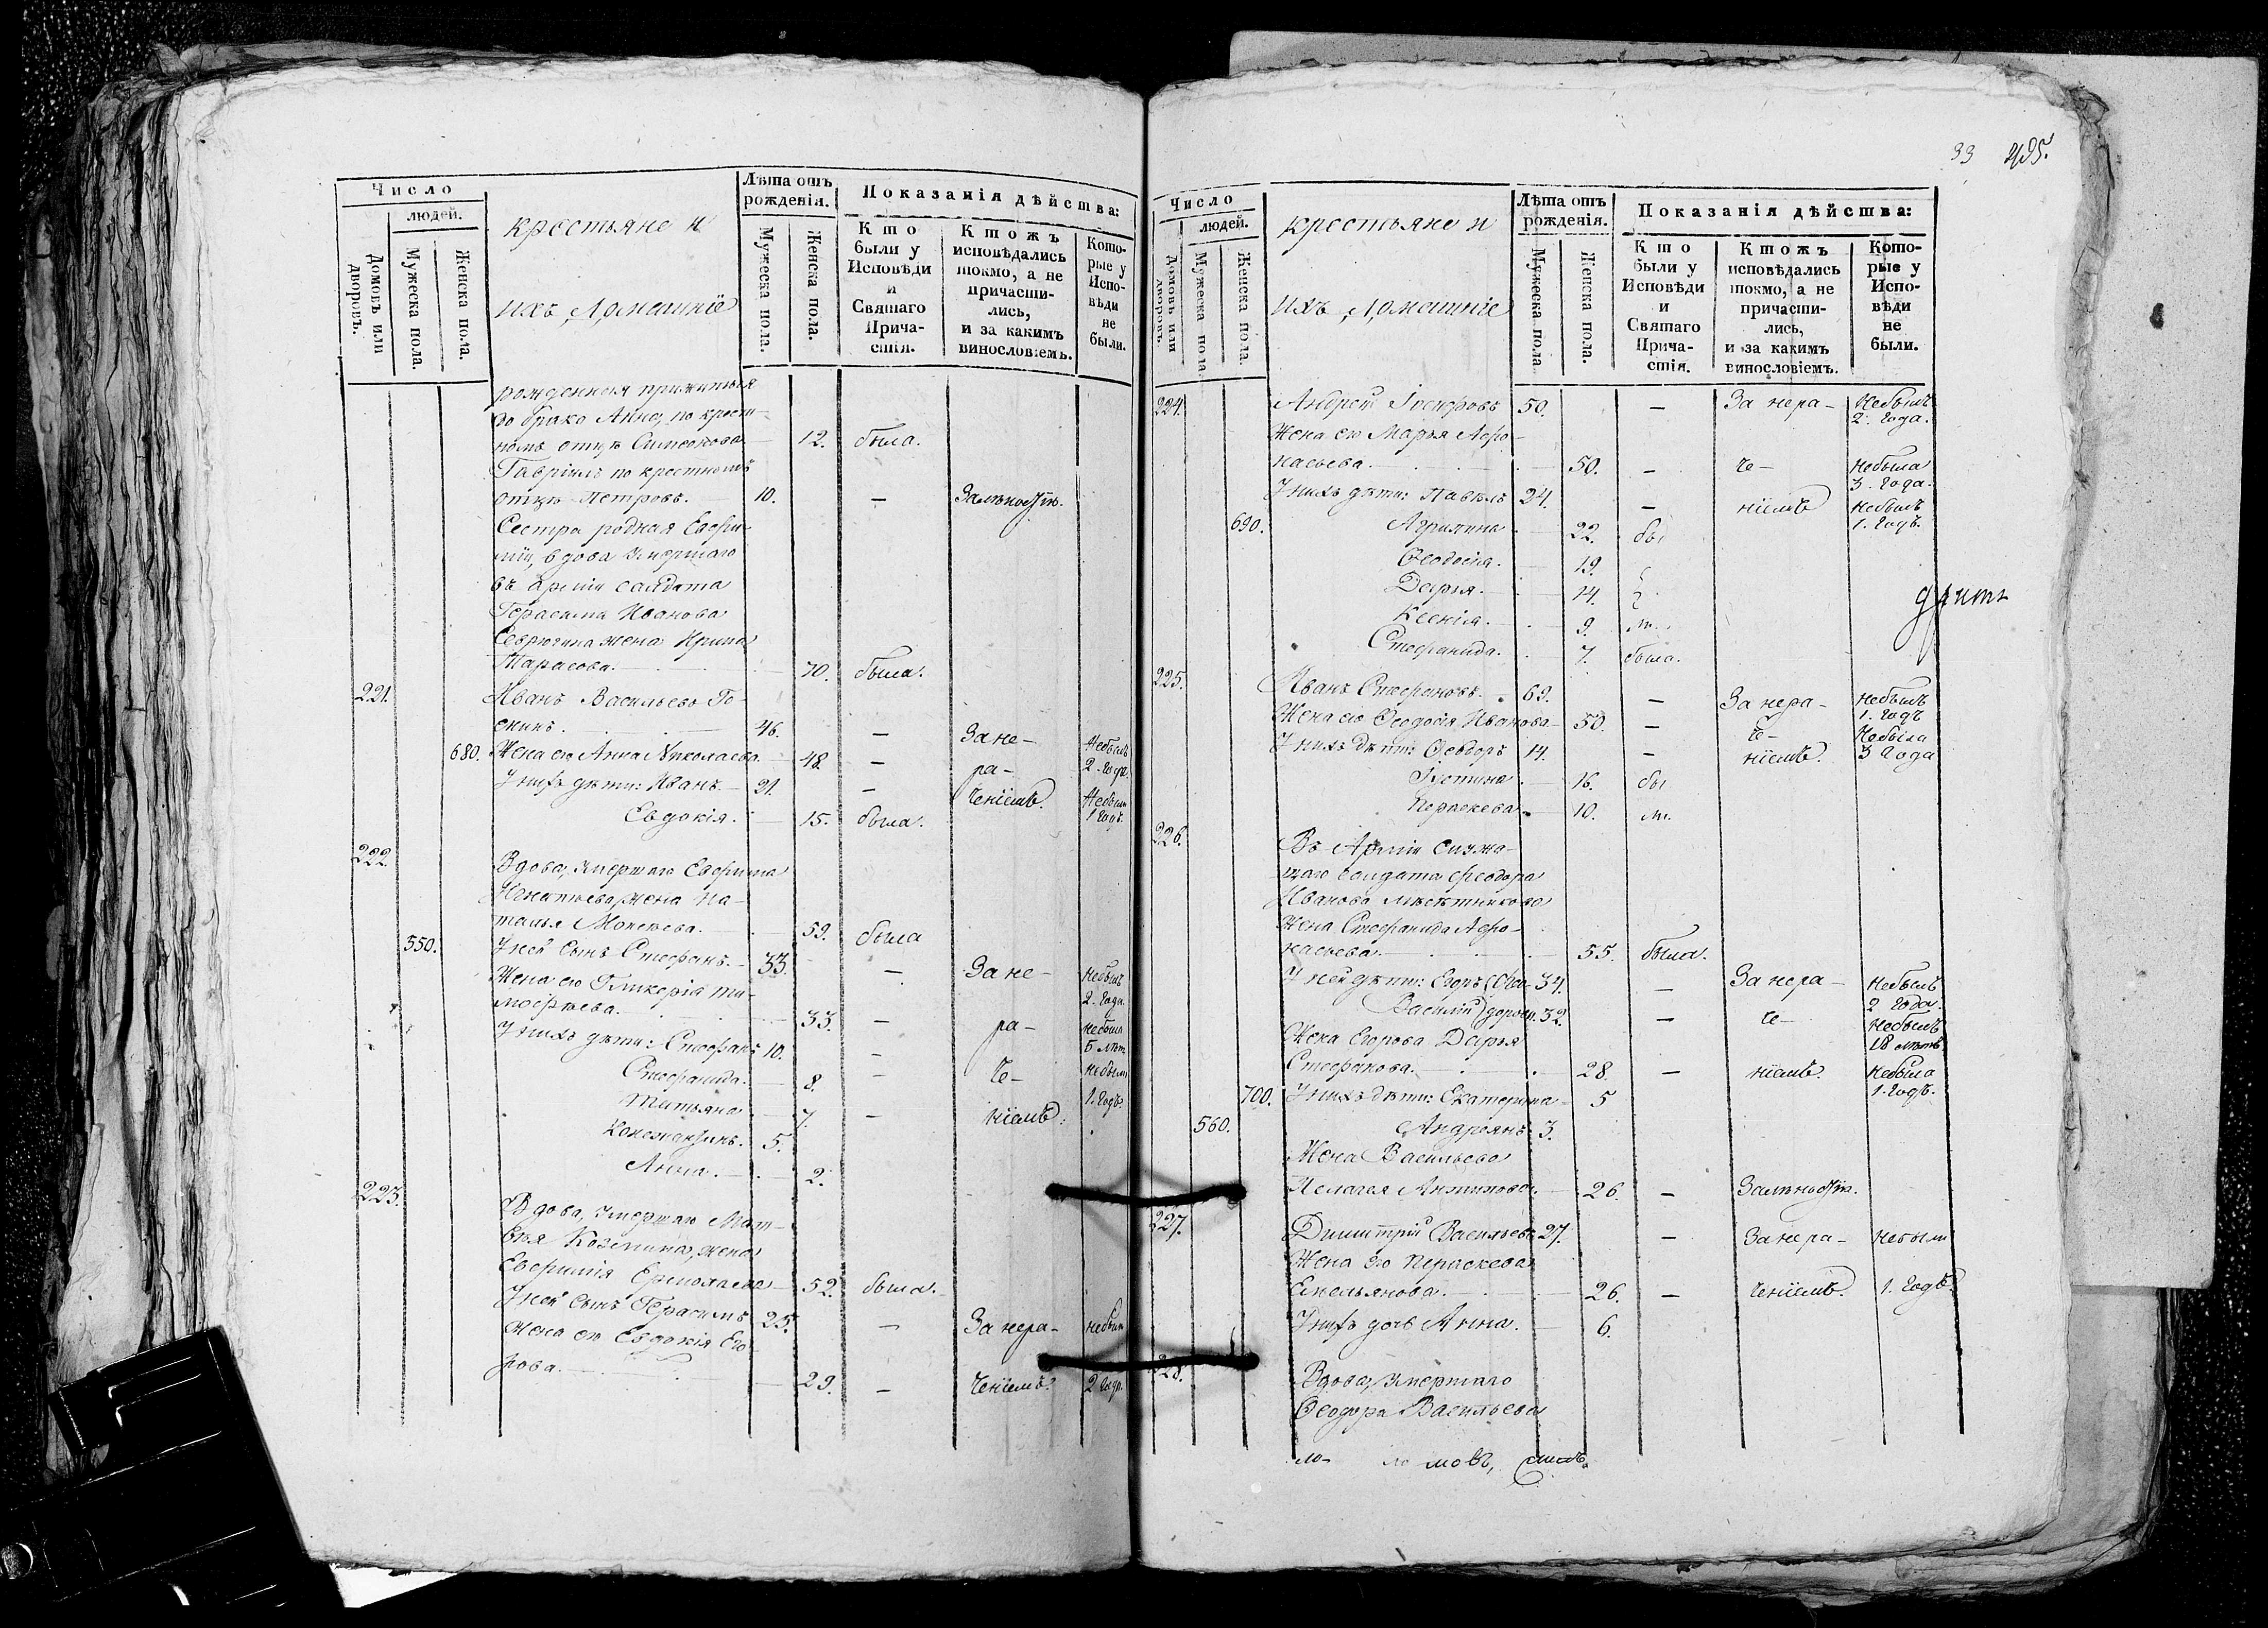 Число
людей.
Домовъ или дворовъ.
Мужеска пола.
Женска пола.
крестьяне и
ихъ Домашніе
Лѣта отъ
рожденія.
Мужеска пола.
Женска пола.
Показанія дѣйства:
Кто
были у
Исповѣди
и
Святаго
Прича-
стія.
Ктожъ
исповѣдались
токмо, а не
причасти-
лись,
и за какимъ
винословіемъ.
Кото-
рые у
Испо-
вѣди
не
были.
рожденная
до брака Анна, по крест-
номъ отцѣ Симеонова 12. была.
Гавріилъ по крестномъ
отцѣ Петровъ. 10. —
Сестра родная Евфи-
міи, вдова умершаго
въ арміи салдата
Герасима Иванова
жена Ирина
Тарасова. 70. была.
221. Иванъ Васильевъ
46. — За не- Небылъ
680. Жена его Анна Николаева 48. — ра- 2. года.
У нихъ дѣти: Иванъ. 21. — ченіемъ. Небылъ
Евдокія. 15. была. 1 годъ.
222. Вдова, умершаго Евфима
Игнатьева, жена На-
талья Мокеева. 59. была
550. У ней сынъ Стефанъ. 33. — За не- небылъ
Жена его Гликерія Ти- 2. года
моѳѣева. 33. — ра- небыла
У нихъ дѣти: Стефанъ 10. — 5 лѣтъ
Стефанида. 8. — че- небыли
Татьяна 7. — ніемъ. 1. годъ.
Константинъ. 5.
Анна. 2.
223. Вдова, умершаго Мат-
вѣя Козмина, жена
Евфимія Ермолаева 52. была.
У ней сынъ Герасимъ 25. — За нера- небыли
Жена его Евдокія Его-
рова. 29. — ченіемъ. 2 года.
33 495.
Число
людей.
Домовъ или дворовъ.
Мужеска пола.
Женска пола.
крестьяне и
ихъ Домашніе
Лѣта отъ
рожденія.
Мужеска пола
Женска пола.
Показанія дѣйства:
Кто
были у
Исповѣди
и
Святаго
Прича-
стія.
Ктожъ
исповѣдались
токмо, а не
причасти-
лись,
и за какимъ
винословіемъ.
Кото-
рые у
Испо-
вѣди
не
были.
224. Андрей Іосифовъ 50. — За нера- Небылъ
2. года.
Жена его Марья Афо-
насьева. 50. — че- небыла
3. года.
У нихъ дѣти: Павелъ 24. — ніемъ небылъ
1. годъ.
690. Агрипина 22. бы
Ѳеодосія. 19.
Дарья. 14.
Ксенія. 9. ли.
Стефанида. 7. была.
225. Иванъ Стефановъ. 69. — За нера- небылъ
1. годъ
Жена его Ѳеодосія Иванова 50. — че- Небыла
3 года
У нихъ дѣти: Ѳеодоръ 14. — ніемъ.
Іустина 16. бы
Пераскева 10. ли.
226. Въ Арміи служа-
щаго солдата Феодора
Иванова
Жена Стефанида Афо-
насьева 55. была.
У ней дѣти: Егоръ Фео- 34. — За нера- небылъ
2 года.
Василій доровы. 32. — че- Небылъ
18 лѣтъ
Жена Егорова Дарья
Стефанова. 28. — ніемъ. Небыла
1. годъ.
700. У нихъ дѣти: Екатерина 5
560. Андреянъ 3.
Жена Васильева
Пелагея Антипова. 26. —
227. Димитрій Васильевъ 27. — За нера- небыли
Жена его Пераскева
Емельянова. 26. — ченіемъ. 1. годъ.
У нихъ дочь Анна. 6.
228. Вдова, умершаго
Ѳеодора Васильева